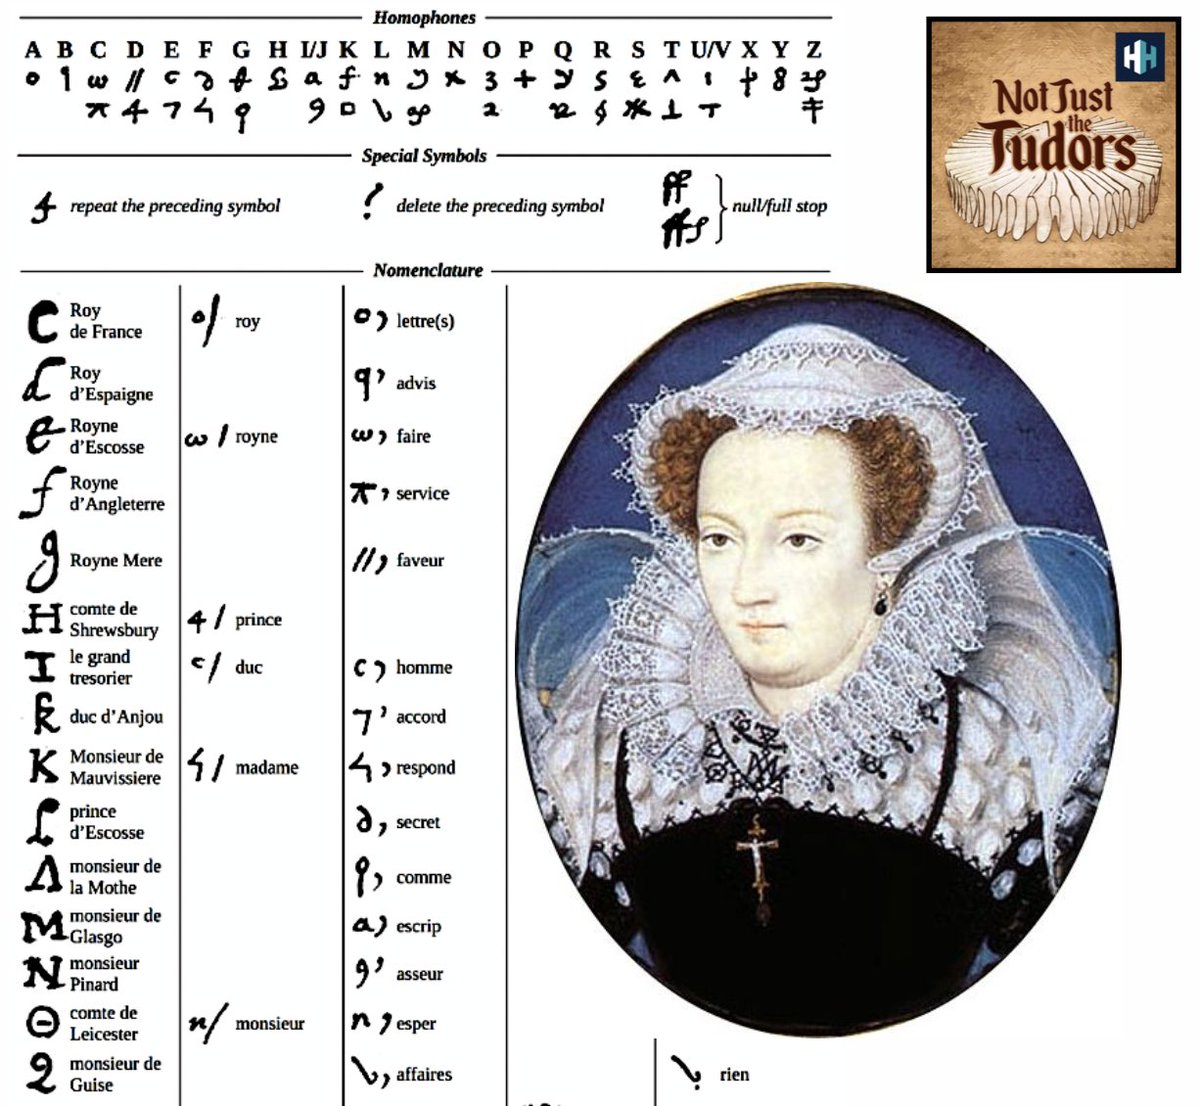 Homophones
A B C D E F G H I/J K L M N O P Q R S T U/V X Y Z
Special Symbols
repeat the preceding symbol
delete the preceding symbol
null/full stop
Nomenclature
Roy
de France
roy
lettre(s)
Roy
d’Espaigne
advis
Royne
d’Escosse
royne
faire
Royne
d’Angleterre
service
Royne Mere
faveur
comte de
Shrewsbury
prince
le grand
tresorier
duc
homme
duc d’Anjou
accord
Monsieur de
Mauvissiere
madame
respond
prince
d’Escosse
secret
monsieur de
la Mothe
comme
monsieur de
Glasgo
escrip
monsieur
Pinard
asseur
comte de
Leicester
monsieur
esper
monsieur de
Guise
affaires
rien
Not Just
the
Tudors
H